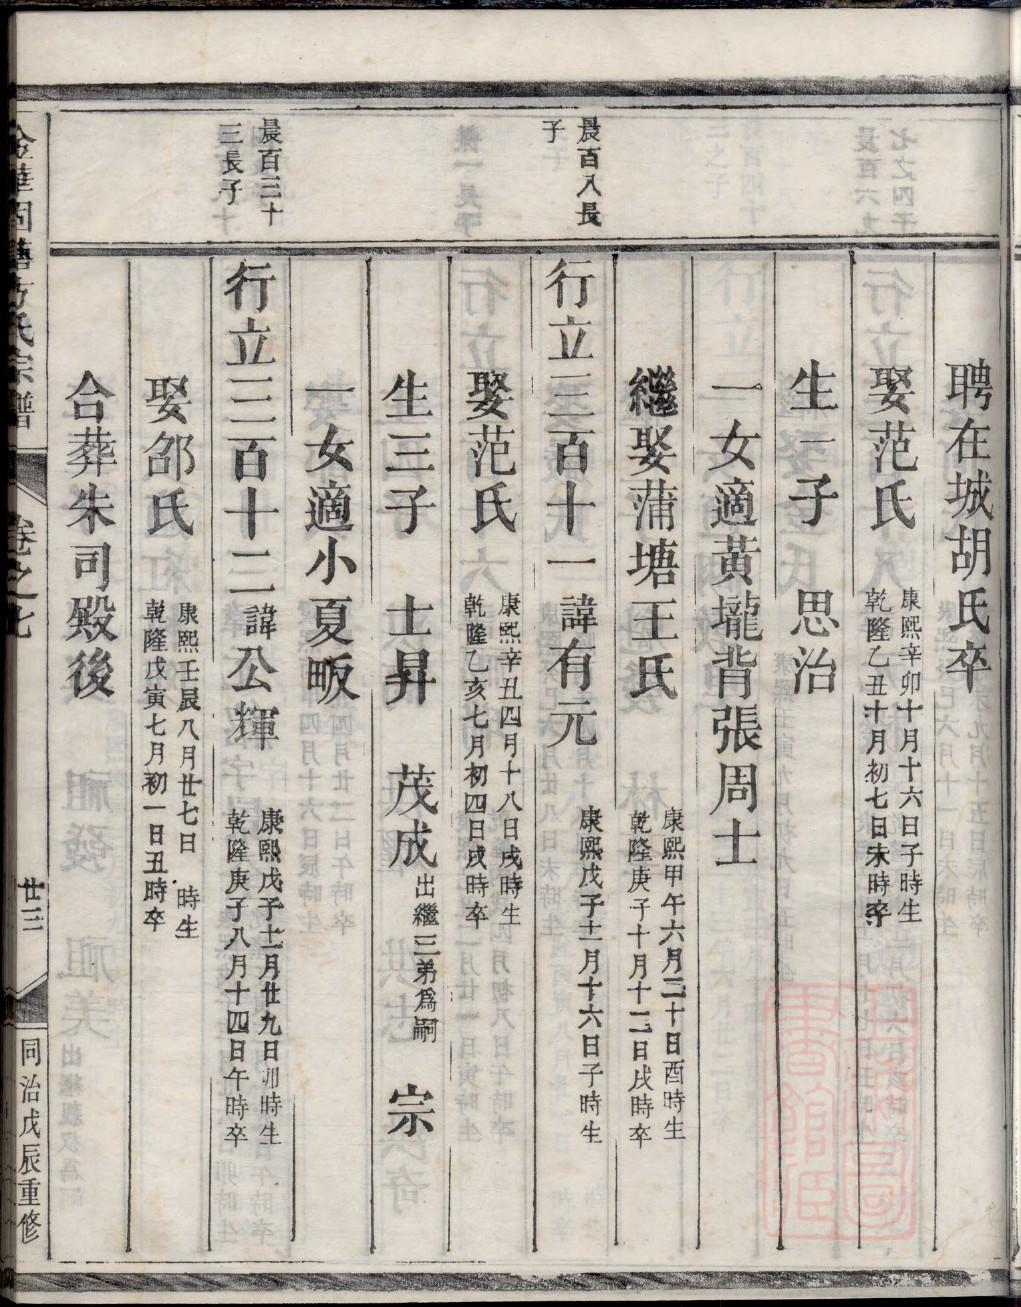 聘在城胡氏卒
娶范氏
康熙辛卯十月十六日子時生
乾隆乙丑十月初七日未時卒
生一子 思治
一女適黃壠背張周士
繼娶蒲塘王氏
康熙甲午六月二十日酉時生
乾隆庚子十月十二日戌時卒
晨百八長
子
行立三百十一諱有元
康熙戊子十一月十六日子時生
娶范氏
康熙辛丑四月十八日戌時生
乾隆乙亥七月初四日戌時卒
生三子 士昇 茂成 出繼三弟為嗣 宗
一女適小夏畈
晨百三十
三長子
行立三百十二諱公輝
康熙戊子十一月廿九日卯時生
乾隆庚子八月十四日午時卒
娶邵氏
康熙壬辰八月廿七日 時生
乾隆戊寅七月初一日丑時卒
合葬朱司殿後
氏宗譜
卷之七
廿三
同治戊辰重修